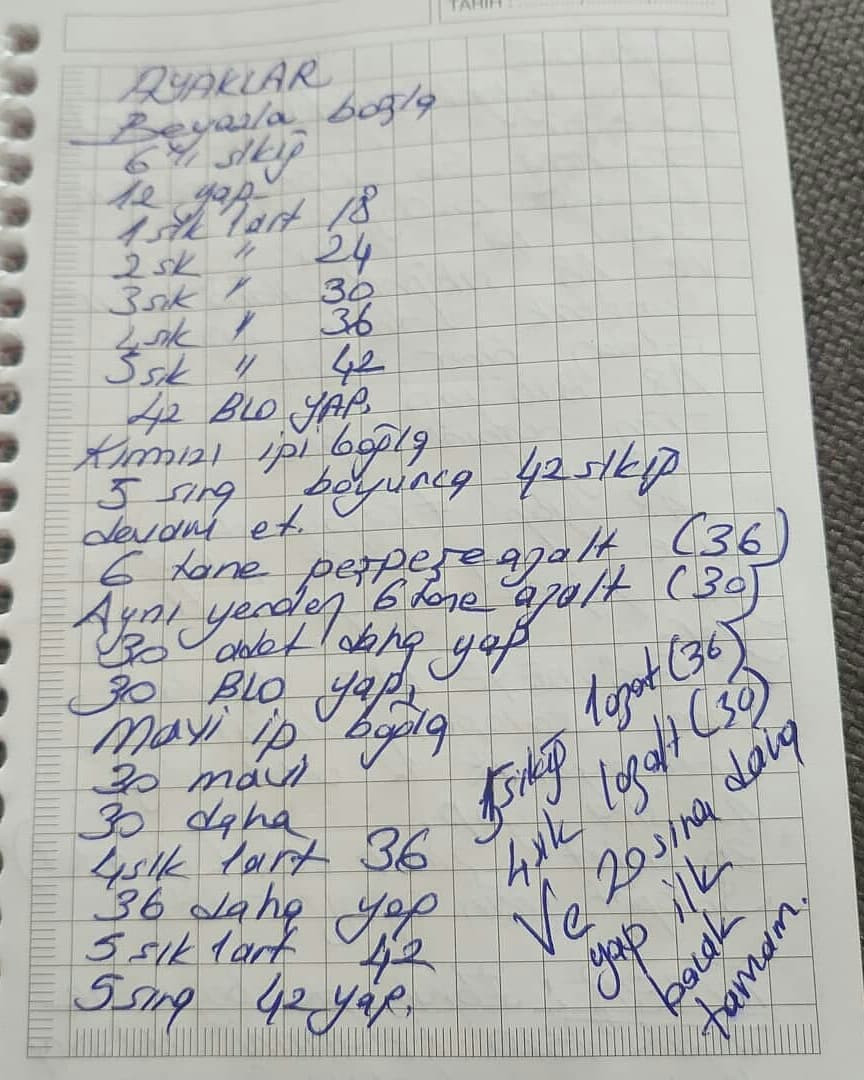 TARİH :
AYAKLAR
Beyazla bağla
6 lı sıkiğ
12 yap
1 sık 1art 18
2 sk " 24
3 sık " 30
4 sık " 36
5 sık " 42
42 BLO YAP.
Kırmızı ipi bağla
5 sıra boyunca 42 sıkiğ
devam et.
6 tane peşpeşe azalt (36)
Aynı yerden 6 tane azalt (30)
30 adet daha yap
30 BLO yap.
Mavi ip bağla
30 mavi
30 daha
4 sık 1art 36
36 daha yap
5 sık 1art 42
5 sıra 42 yap.
5 sıkiğ 1azalt (36)
4 sık 1azalt (30)
Ve 20 sıra daha
yap ilk
bacak
tamam.